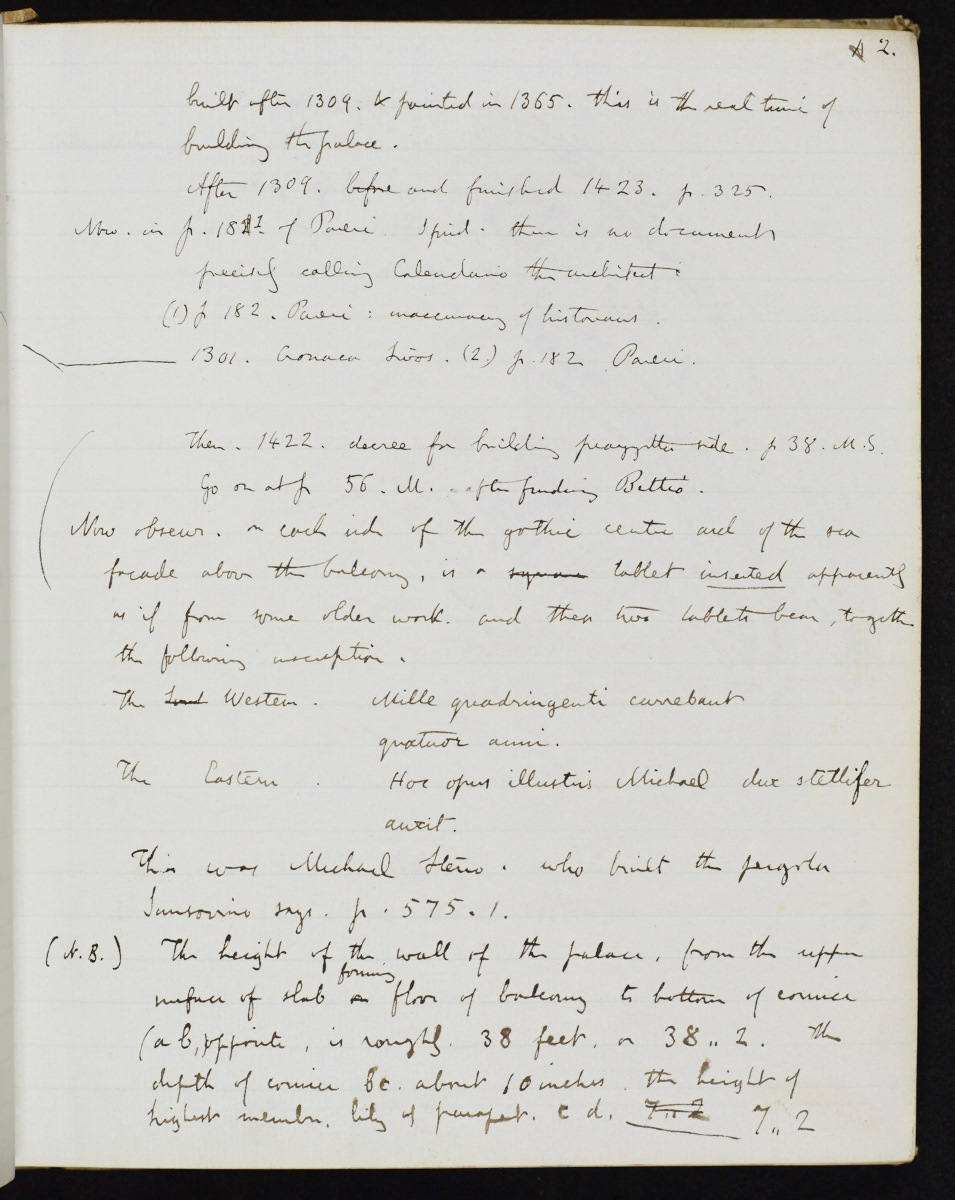 2.
built after 1309. & painted in 1365. this is the real time of
building the palace.
After 1309. before and finished 1423. p. 325.
Now. in p. 181 of Paeri I find. there is no document
precisely calling Calendario the architect:
(1) p 182. Paeri: inaccuracy of historians.
1301. Cronaca Sivos. (2) p. 182 Paeri.
Then. 1422. decree for building piazzetta side. p 38. M.S.
Go on at p 56. M. after finding Bettio.
Now observe. on each side of the gothic centre and of the sea
facade above the balcony, is a square tablet inserted apparently
as if from some older work. and these two tablets bear, together
the following inscription.
The Western. Mille quadringenti currebant
quatuor anni.
The Eastern. Hoc opus illustris Michael dux stellifer
auxit.
This was Michael Steno. who built the pergola
Sansovino says. p. 575.1.
(N.B.) The height of the wall of the palace, from the upper
surface of slab forming floor of balcony to bottom of cornice
(a b, opposite, is roughly. 38 feet, or 38,, 2. The
depth of cornice bc. about 10 inches. the height of
highest member, lily of parapet. c d. 7,, 2 7,, 2